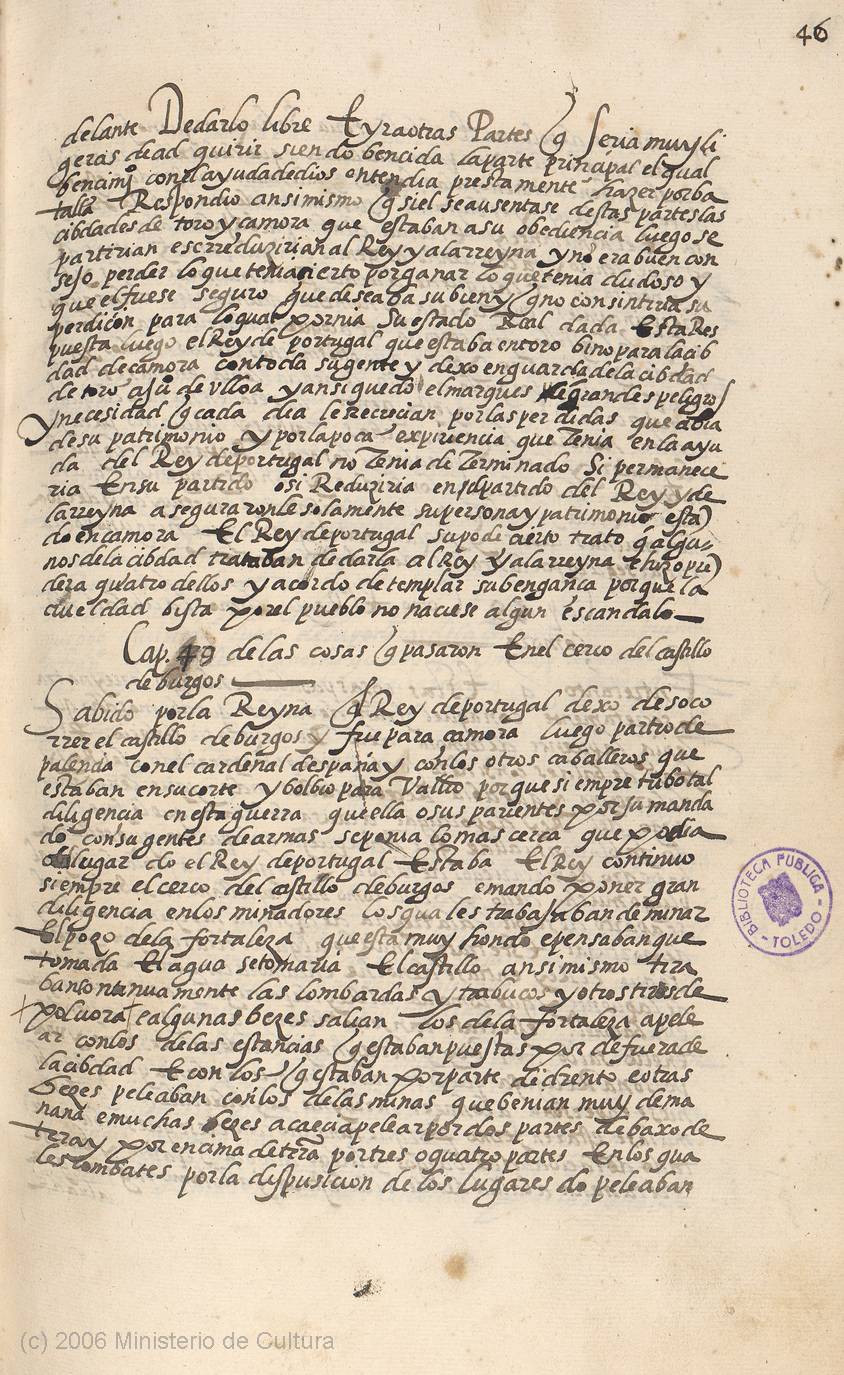 46
delante Dedarlo libre E yr a otras Partes q seria muy li
geras de ad quirir siendo bencida la parte principal el qual
bencimjo con el ayuda de dios entendia prestamente hazer por ba
talla Respondio ansimismo q si el se ausentase destas partes las
cibdades de toro y camora que estaban a su obediencia luego se
partirian es rreduzirian al Rey y a la rreyna y no era buen con
sejo perder lo que tenia cierto por ganar lo que tenia dudoso y
que el fuese seguro que deseaba su bien y q no consintiria su
perdicion para lo qual pornia su estado Real dada Esta Res
puesta luego el Rey de portugal que estaba en toro bino para la cib
dad de camora con toda su gente y dexo en guarda de la cibdad
de toro a ju de vlloa y ansi quedo el marques grandes peligros
y necesidad q cada dia le recrecian por las perdidas que abia
de su patrimonio y por la poca expiriencia que Tenia en la ayu
da del Rey de portugal no Tenia de Terminado Si permanece
ria En su partido o si Reduziria en el partido del Rey y de
la rreyna a seguraronle solamente su persona y patrimonio esta
do en camora El Rey de portugal supo de cierto trato q algu
nos de la cibdad trataban de darla al Rey y a la rreyna e hizo pre
dera quatro dellos y acordo de templar su benganca porque la
crueldad bista por el pueblo no naciese algun escandalo
Cap. 49 de las cosas q pasaron En el cerco del castillo
de burgos
Sabido por la Reyna q Rey de portugal dexo de soco
rrer el castillo de burgos y fue para camora luego partio de
palencia con el cardenal despaña y con los otros caballeros que
estaban en su corte y bolbio para Vallid porque siempre tubo tal
diligencia en esta guerra que ella o sus parientes por su manda
do con sus gentes de armas se ponia lo mas cerca que podia
al lugar do el Rey de portugal Estaba El Rey continuo
siempre el cerco del castillo de burgos e mando poner gran
diligencia en los minadores los quales trabajaban de minar
El pozo de la fortaleza que esta muy hondo e pensaban que
tomada El agua se tomaria El castillo ansimismo tira
ban continuamente las lombardas y trabucos y otros tiros de
polvora e algunas bezes salian los de la fortaleza a pele
ar con los de las estancias q estaban puestas por de fuera de
la cibdad E con los q estaban por parte de drento e otras
bezes peleaban con los de las minas que benian muy de ma
nana e muchas bezes acaecia pelear por dos partes debaxo de
terra y por encima de trra por tres o quatro partes En los qua
les combates por la dispusicion de los lugares do peleaban
BIBLIOTECA PUBLICA - TOLEDO -
(c) 2006 Ministerio de Cultura